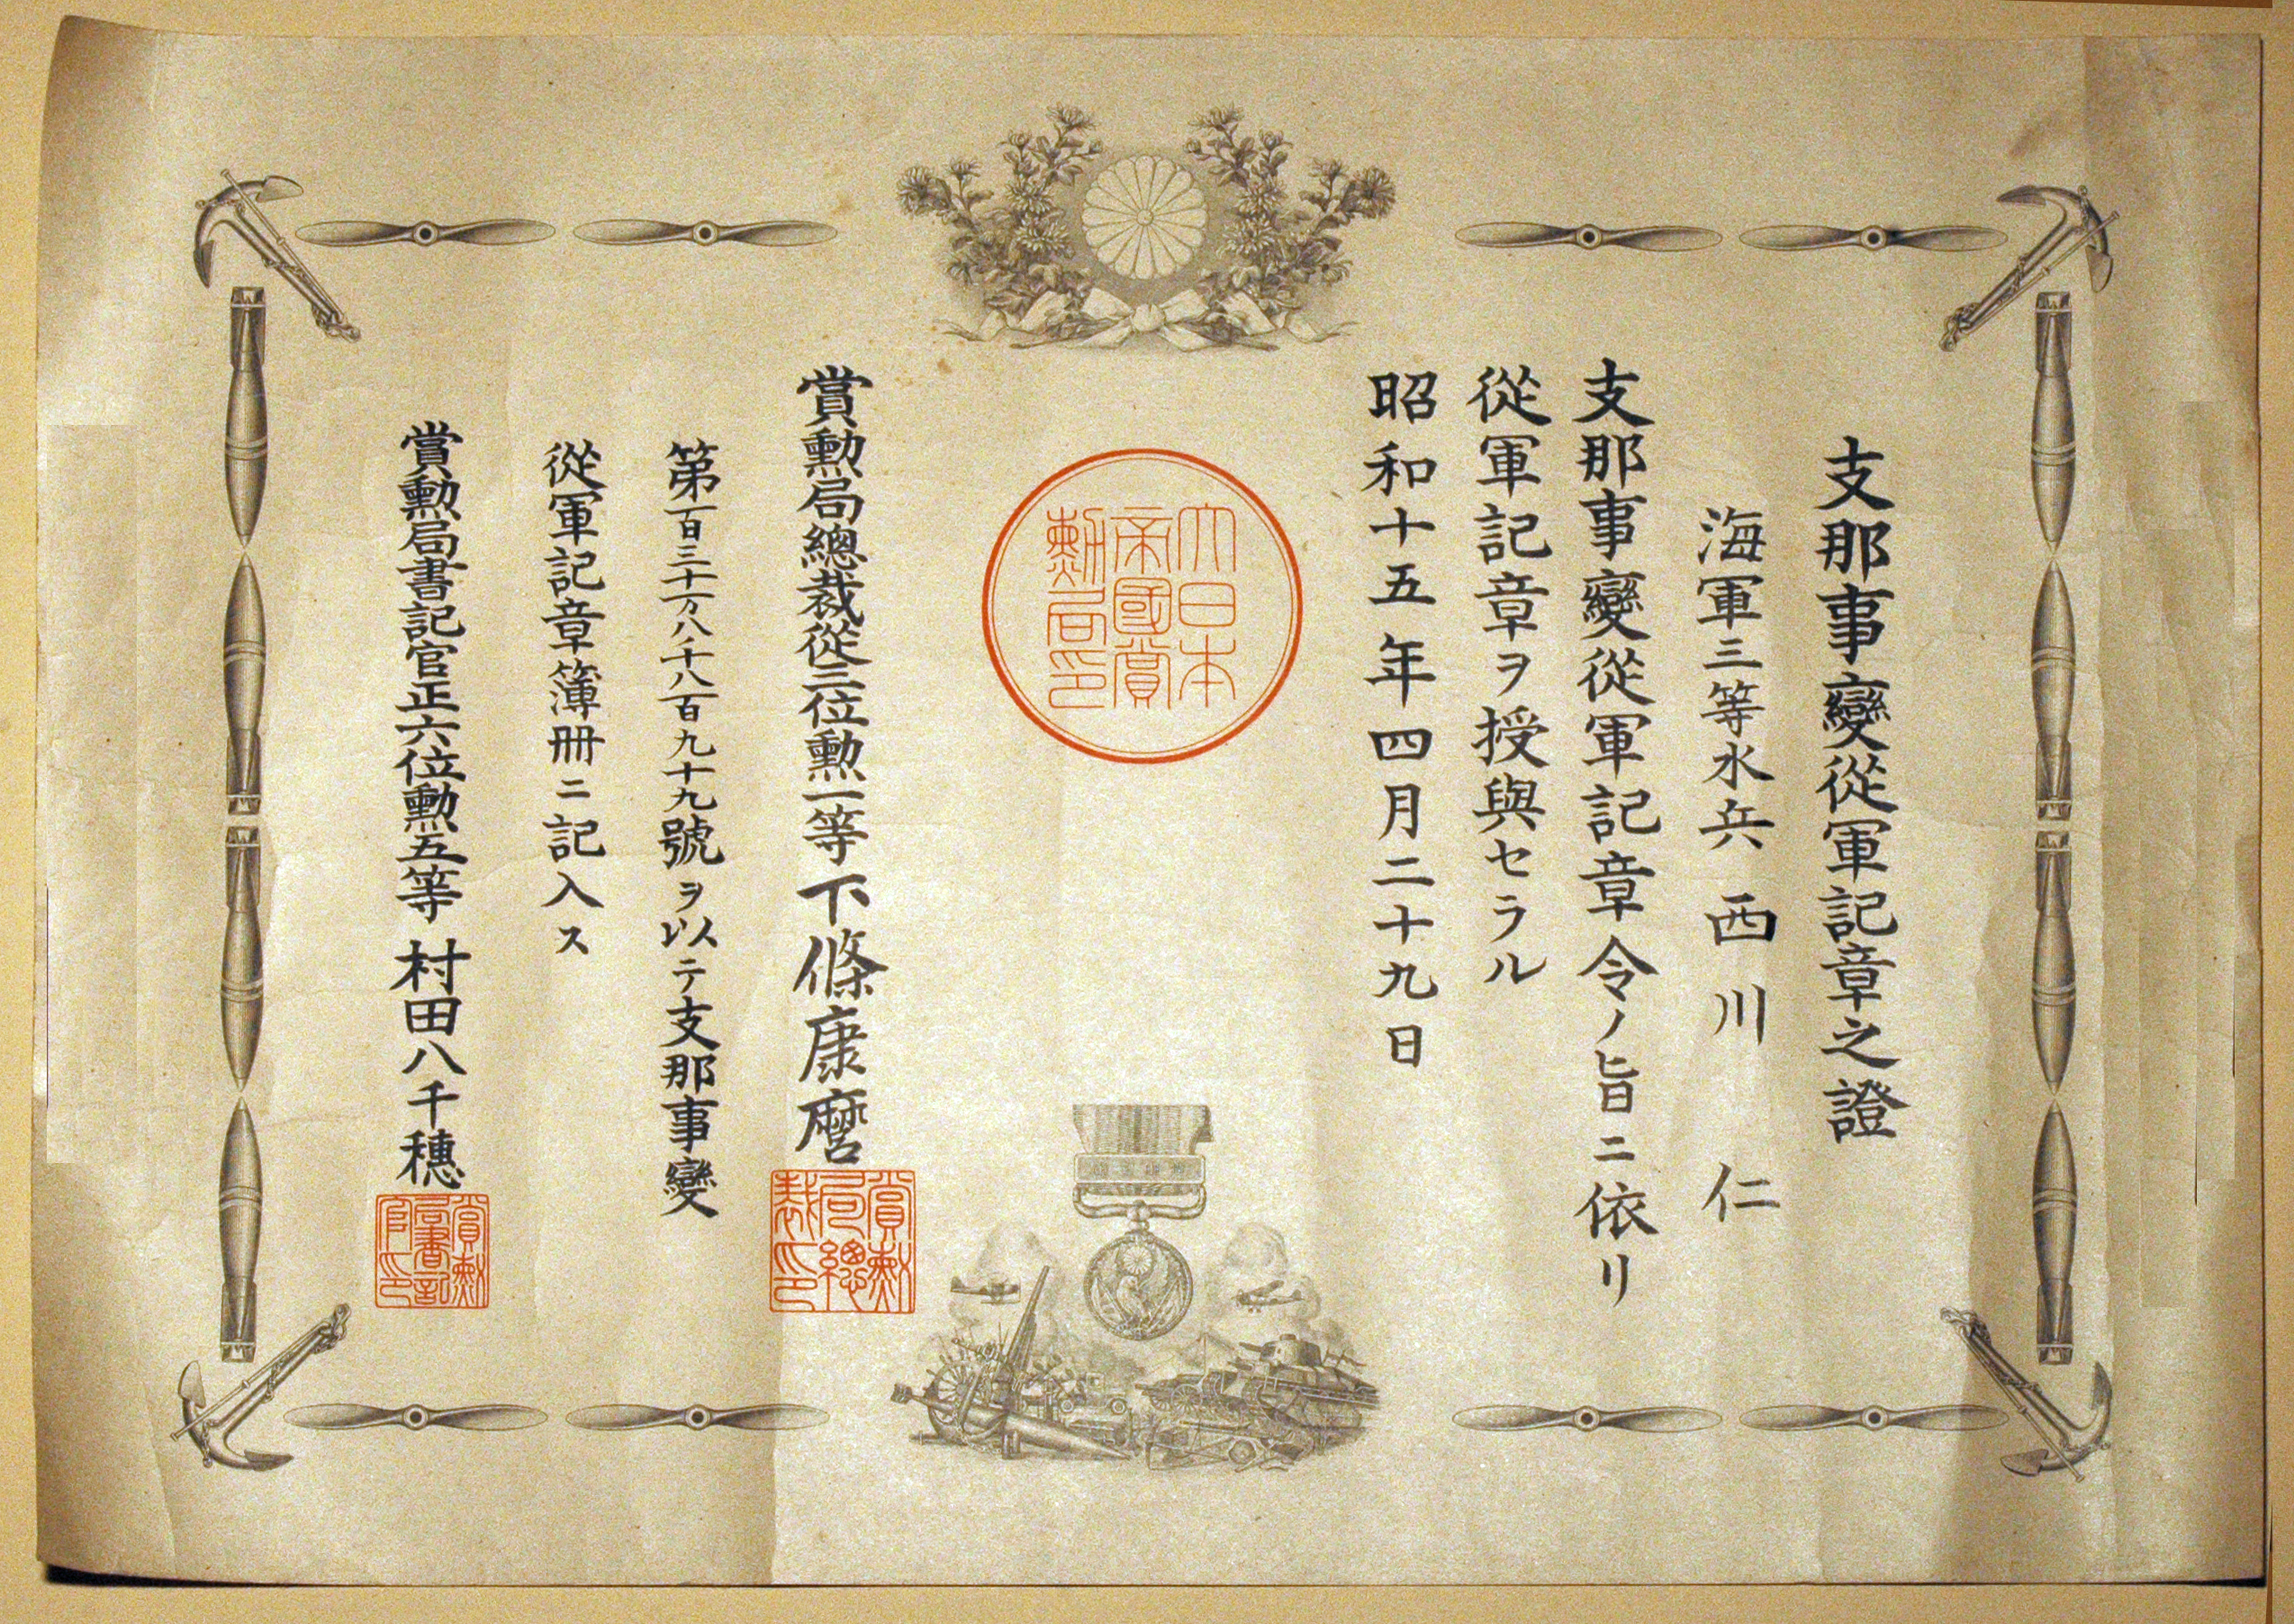 支那事變從軍記章之證
海軍三等水兵 西川 仁
支那事變從軍記章令ノ旨ニ依リ
從軍記章ヲ授與セラル
昭和十五年四月二十九日
大日本
帝國賞
勲局印
賞勲局總裁從三位勲一等 下條康麿
賞勲
局總
裁印
第百三十万八千八百九十九號ヲ以テ支那事變
從軍記章簿冊ニ記入ス
賞勲局書記官正六位勲五等 村田八千穗
賞勲
局書記
官印